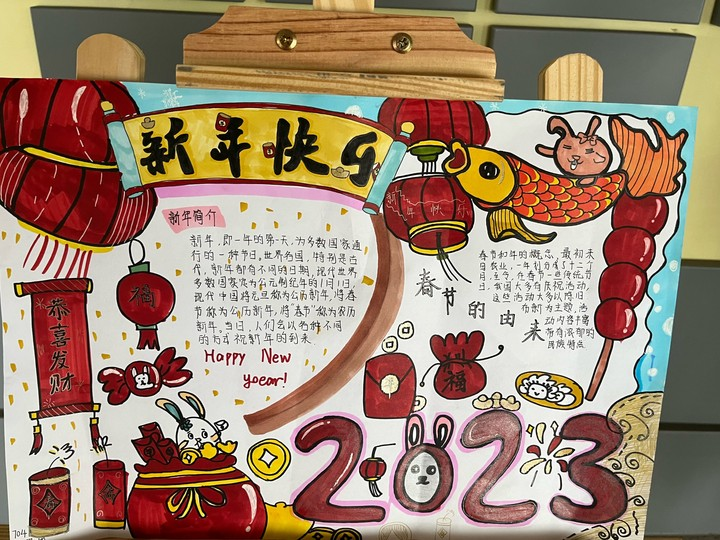 新年快乐
新年简介
新年,即一年的第一天,为多数国家通
行的一种节日,世界各国,特别是古
代,新年都有不同的日期,现代世界
多数国家定为公元制纪年的1月1日,
现代中国将元旦称为公历新年,将春
节称为公历新年,将"春节"称为农历
新年,当日,人们会以各种不同
的方式祝新年的到来
Happy New
yoear!
恭喜发财
福
新年快乐
春节的由来
春节和年的概念,最初来
我国大多有庆祝活动,
这些活动大多以除旧
布新为主题,活
动内容丰富
带有浓郁的
民族特点
福
2023
704